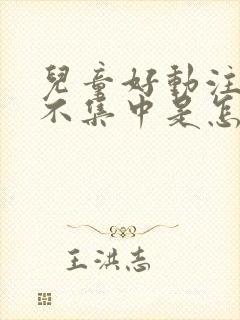 兒童好動注
不集中是怎
王洪志